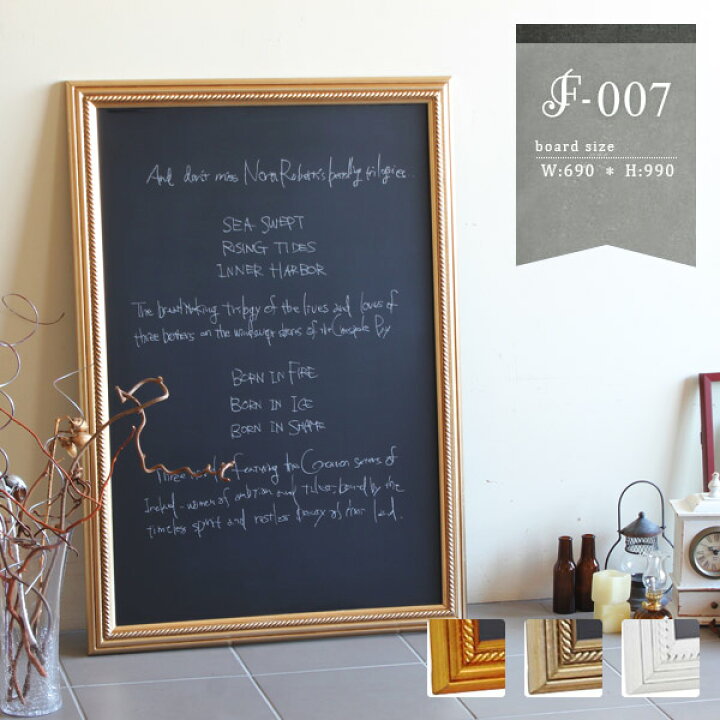 F-007
board size
W:690 * H:990
And don't miss Nora Roberts's trilogies...
SEA SWEPT
RISING TIDES
INNER HARBOR
The trilogy of the lives and loves of
three brothers on the of the Bay
BORN IN FIRE
BORN IN ICE
BORN IN SHAME
Three featuring the Concannon sisters of
Ireland women of ambition and talent bound by the
timeless spirit and restless of their land.